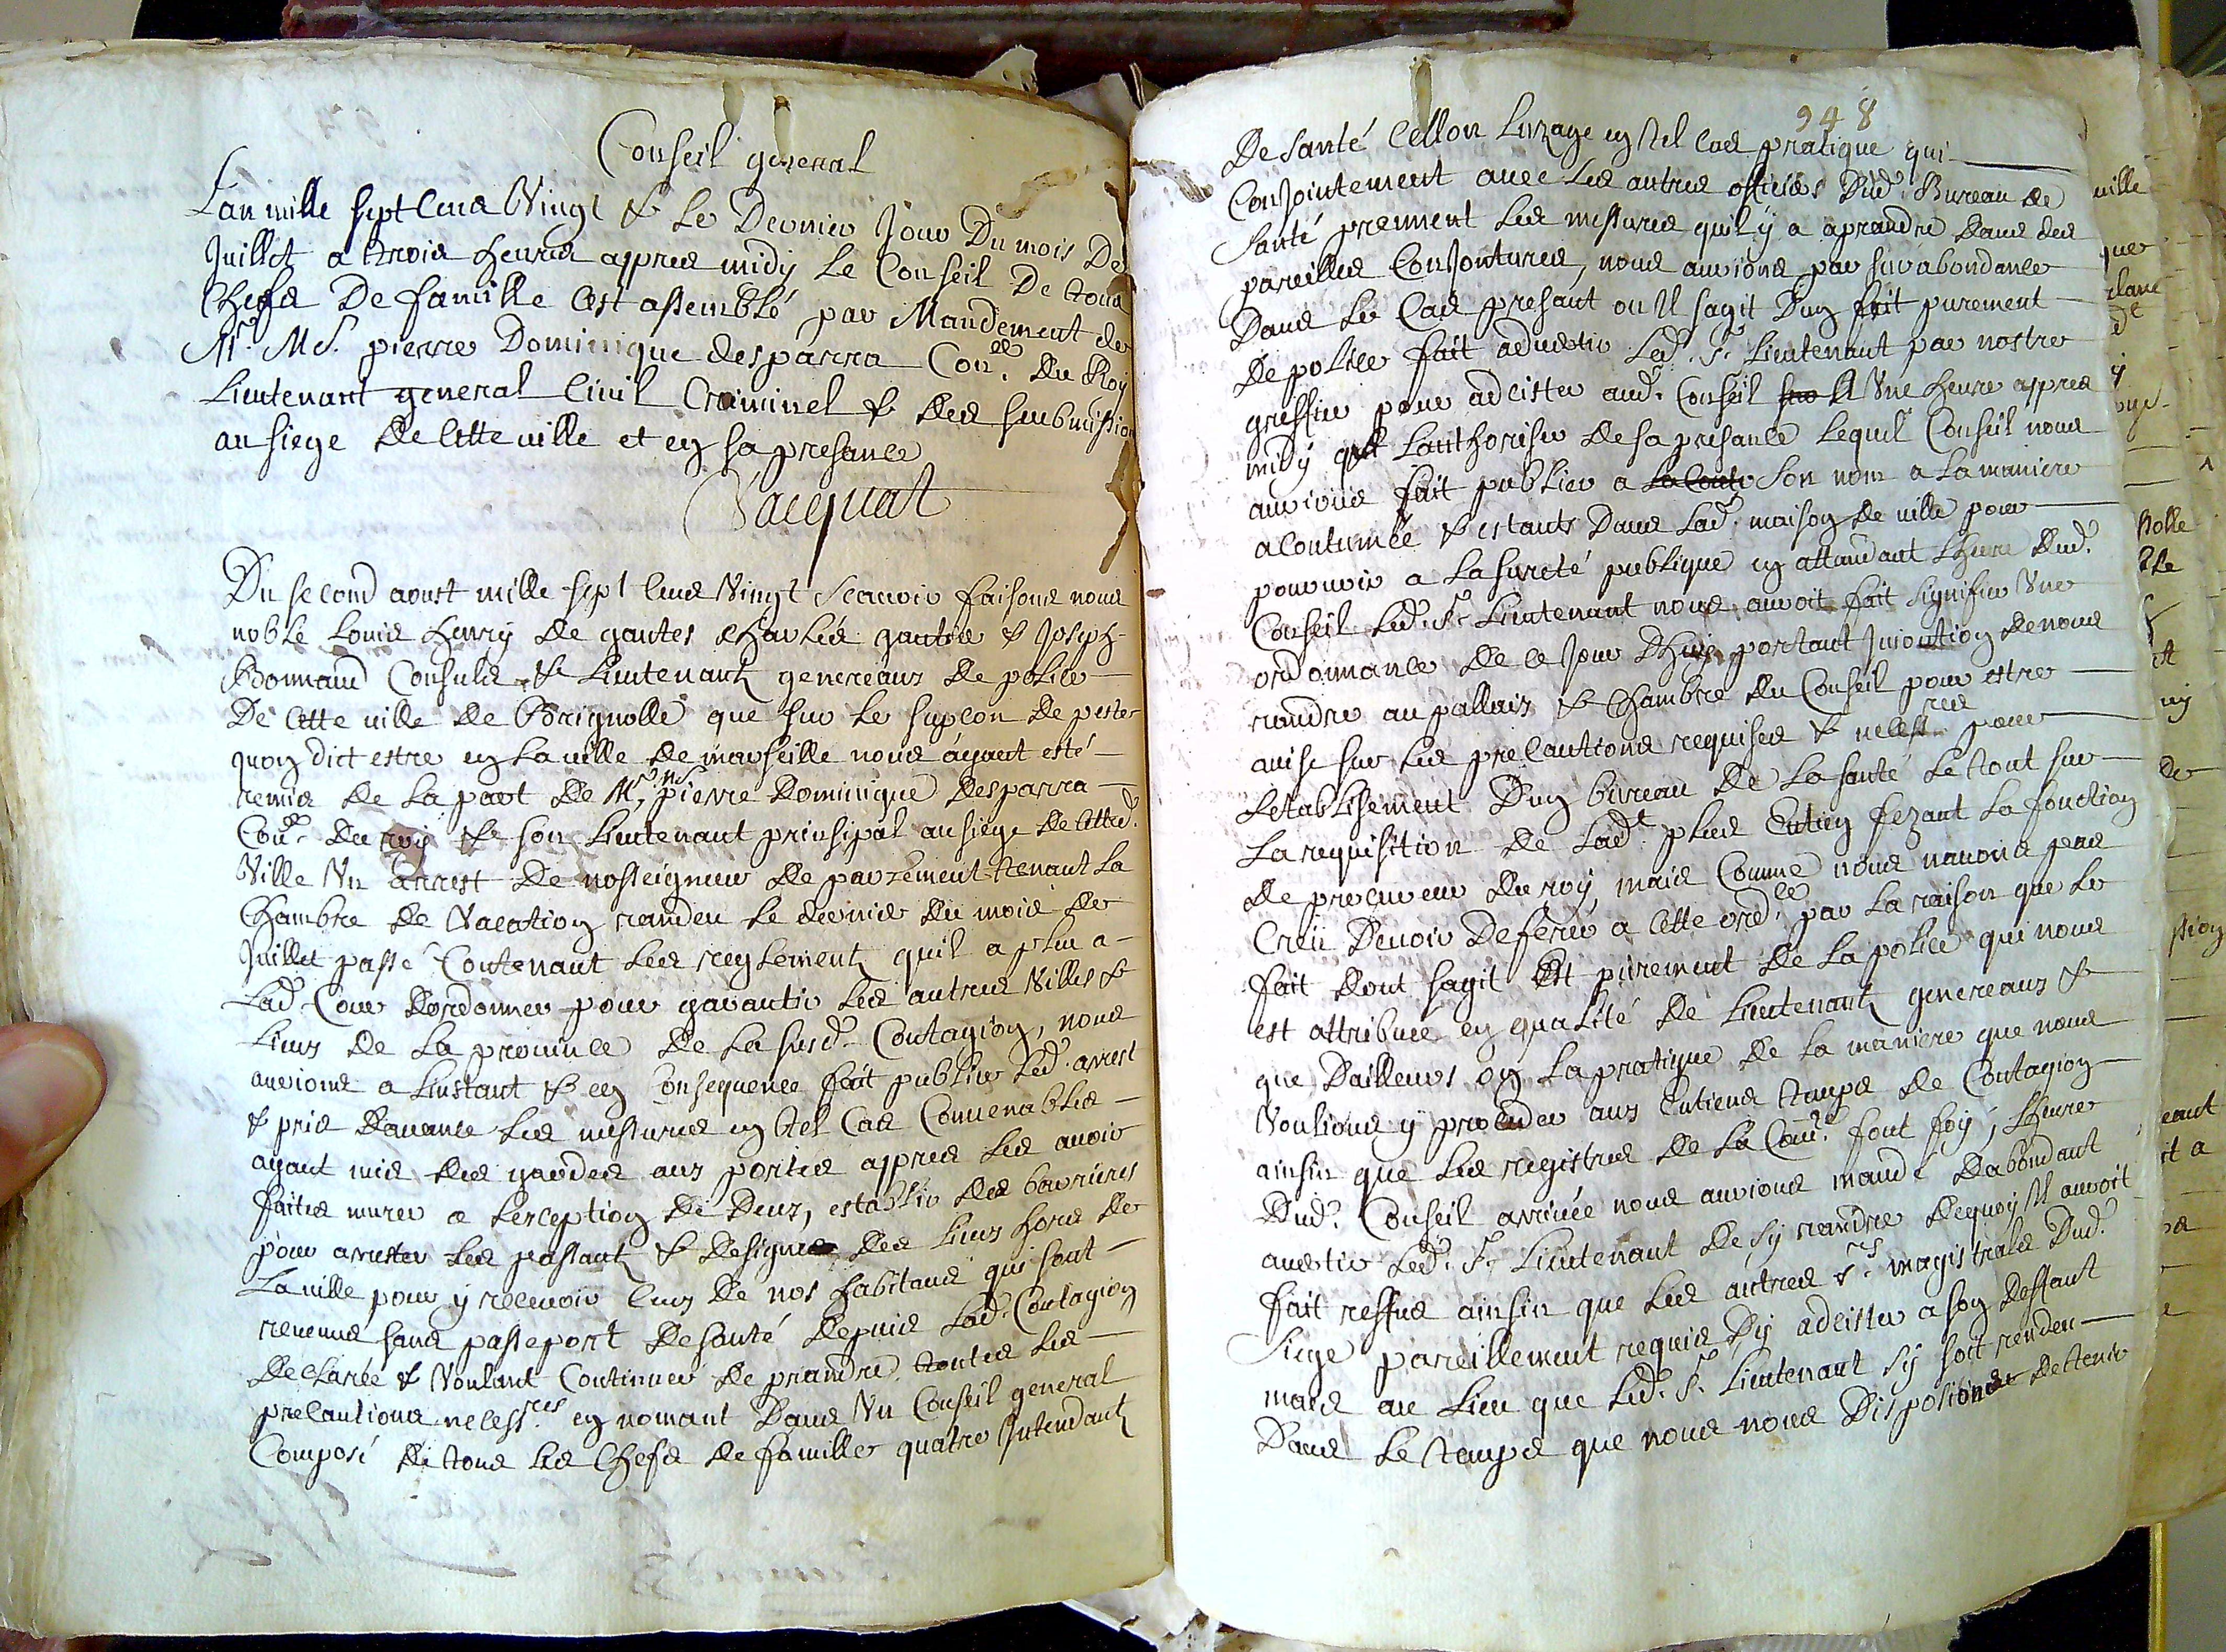 Conseil general
Lan mille sept cens vingt & le dernier jour du mois de
juillet a trois heures appres midy le Conseil de tous
chefs de famille cest assemblé par mandement de
Mr. Me. pierre Dominique desparra Conlle. du Roy
Lieutenant general civil criminel & des submission
au siege de cette ville et en sa presance
Vacquat
Du second aoust mille sept cens vingt scavoir faisons nous
noble Louis henry de gantes charles gautier & joseph
Bonnaud Consuls & Lieutenants genereaux de police
de cette ville de Brignolle que sur le supcon de peste
quon dict estre en la ville de marseille nous áyant esté
remis de la part de Mr. Me. pierre dominique desparra
Conlle. du roy & son Lieutenant prinsipal au siege de cette d.
ville un arrest de nosseigneur de parlement tenant la
chambre de vacation rendeu le dernier du mois de
juillet passé contenant les reglements quil a pleu a
lad. Cour dordonner pour garantir les autres villes &
lieux de la province de la susd. Contagion, nous
aurions a linstant & en consequence fait publier led. arrest
& pris davance les messures en tel cas convenables
ayant mis des gardes aux portes appres les avoir
faites murer a lexception de deux, establir des barrieres
pour arrester les passants & designer des lieux hors de
la ville pour y recevoir ceux de nos habitans qui sont
revenus sans passeport de santé depuis lad. Contagion
declarée & voulant continuer de prandre toutes les
precautions necessres. en nomant dans un Conseil general
composé de tous les chefs de famille quatre Intendants
948
de santé cellon luzage en tel cas pratiqué qui
conjointement avec les autres officies dud. Bureau de
santé prennent les messures quil y a aprandre dans des
pareilles conjontures, nous aurions par surabondance
dans le cas presant ou Il sagit dun fait purement
de police fait advertir led. sr. Lieutenant par nostre
greffier pour adcister aud. Conseil a une heure appres
midy lauthoriser de sa presance lequel Conseil nous
aurions fait publier a son nom a la maniere
acoutumée & estants dans lad. maison de ville pour
pourvoir a la sureté publique en attandant lheure dud.
Conseil led. sr. Lieutenant nous auroit fait signifier une
ordonnance de ce jour dhuy portant Injontion de nous
randre au pallais & chambre du Conseil pour estre
avise sur les precautions requises & necessres pour
letablissement dun bureau de la santé le tout sur
la requisition de ladt plus entien fezant la fonction
de procureur du roy, mais comme nous navons pas
creu devoir deferer a cette ordce. par la raison que le
fait dont sagit est purement de la police qui nous
est attribuée en qualité de Lieutenants genereaux &
que dailleurs on la pratique de la maniere que nous
voulions y proceder aux entiens temps de Contagion
ainsin que les registres de la Comté. font foy, lheure
dud. Conseil arrivée nous aurions mandé dabondant
avertir led. sr. Lieutenant de sy randre dequoy Il auroit
fait reffus ainsin que les autres srs. magistrals dud.
siege pareillement requis dy adcister a son deffaut
mais au lieu que led. sr. Lieutenant sy soit rendeu
dans le temps que nous nous disposions de tenir